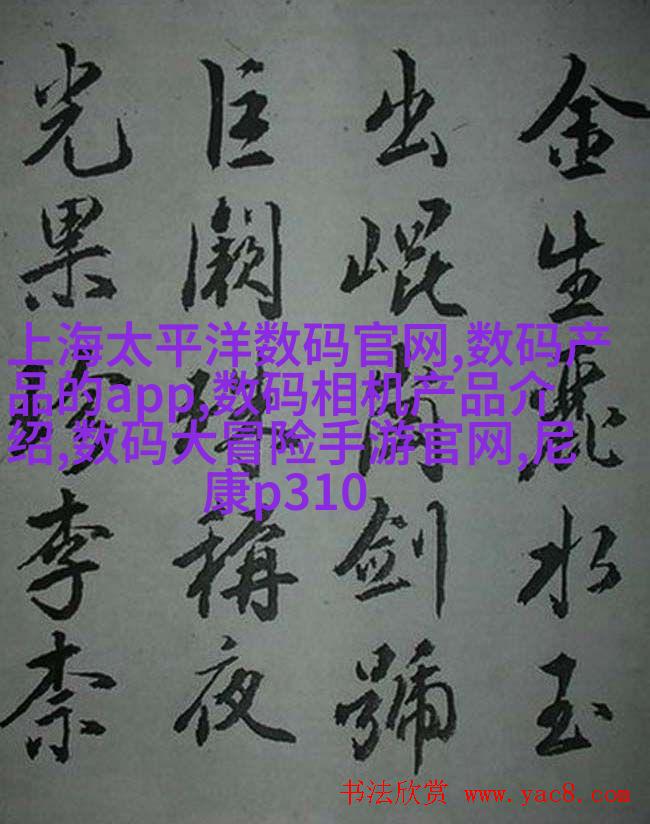 金生麗水玉
出崐岡劍號
巨闕珠稱夜
光果珍李柰
上海太平洋数码官网,数码产
品的app,数码相机产品介
绍,数码大冒险手游官网,尼
康p310
书法欣赏 www.yac8.com